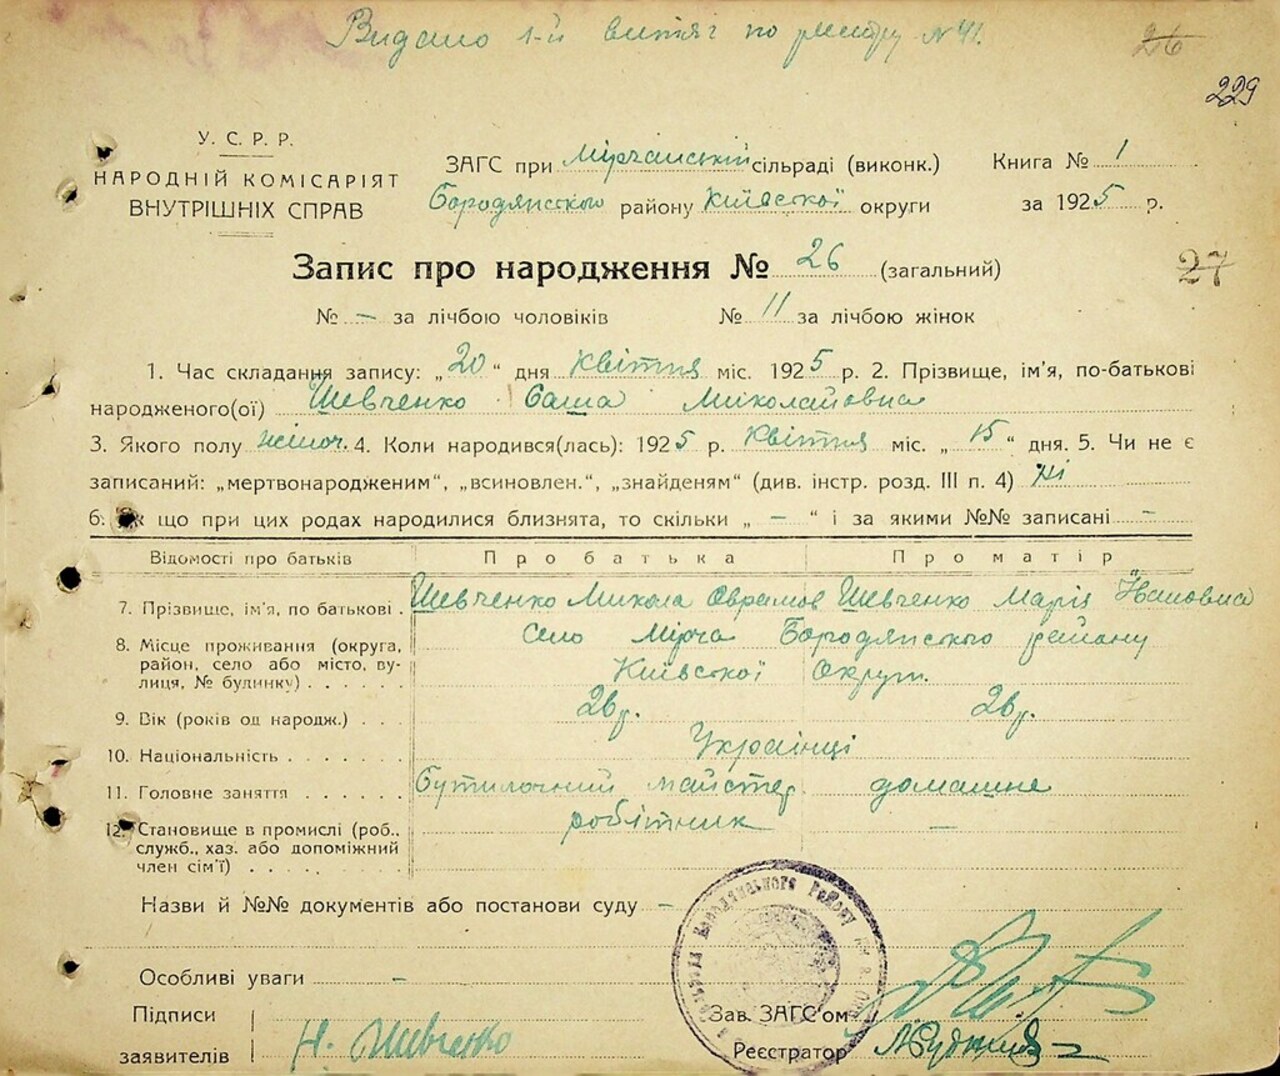 Видано 1-й витяг по реєстру № 41.
26
229
У. С. Р. Р.
НАРОДНІЙ КОМІСАРІЯТ
ВНУТРІШНІХ СПРАВ
ЗАГС при Мірчанській сільраді (виконк.)
Бородянського району Київської округи
Книга № 1
за 1925 р.
Запис про народження № 26 (загальний)
27
№ — за лічбою чоловіків № 11 за лічбою жінок
1. Час складання запису: „20“ дня Квітня міс. 1925 р. 2. Прізвище, ім'я, по-батькові
народженого(ої) Шевченко Саша Миколайовна
3. Якого полу жіноч. 4. Коли народився(лась): 1925 р. Квітня міс. „15“ дня. 5. Чи не є
записаний: „мертвонародженим“, „всиновлен.“, „знайденям“ (див. інстр. розд. III п. 4) Ні
6. Як що при цих родах народилися близнята, то скільки „ — “ і за якими №№ записані —
Відомості про батьків Про батька Про матір
7. Прізвище, ім'я, по батькові . Шевченко Микола Оврамов Шевченко Марія Йвановна
8. Місце проживання (округа, село Мірча Бородянського району
район, село або місто, ву-
лиця, № будинку) . . . . . . Київської Округи.
9. Вік (років од народж.) . . . 26 р. 26 р.
10. Національність . . . . . . . Українці
11. Головне заняття . . . . . . Бутилочний майстер домашне
12. Становище в промислі (роб., робітник —
служб., хаз. або допоміжний
член сім'ї) . . . . . . . .
Назви й №№ документів або постанови суду —
Особливі уваги —
Підписи
заявителів Н. Шевченко
Зав. ЗАГС'ом
Реєстратор